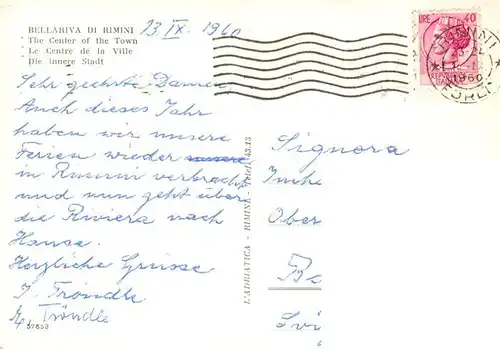 BELLARIVA DI RIMINI
The Center of the Town
Le Centre de la Ville
Die innere Stadt
13.IX.1960
LIRE 40
RIMINI
1960
FORLI
Sehr geehrte Damen,
Auch dieses Jahr
haben wir unsere
Ferien wieder
in Rimini verbracht
und nun geht über
die Riviera nach
Hause.
Herzliche Grüsse
J. Tröndle
Tröndle
37653
L'ADRIATICA - RIMINI - Telef. 43.13
Signora
Ober
Be
Svi